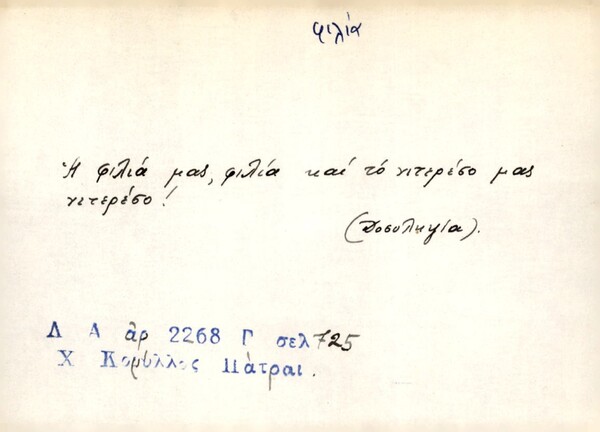 φιλία
Ἡ φιλιά μας, φιλία καί τό ντερέσο μας
ντερέσο!
(Δοσυληψία).
Λ Α ἀρ 2268 Γ σελ 725
Χ Κορύλλος Πάτραι.